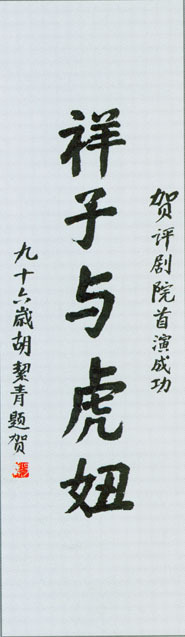 贺评剧院首演成功
祥子与虎妞
九十六歲胡絜青题贺